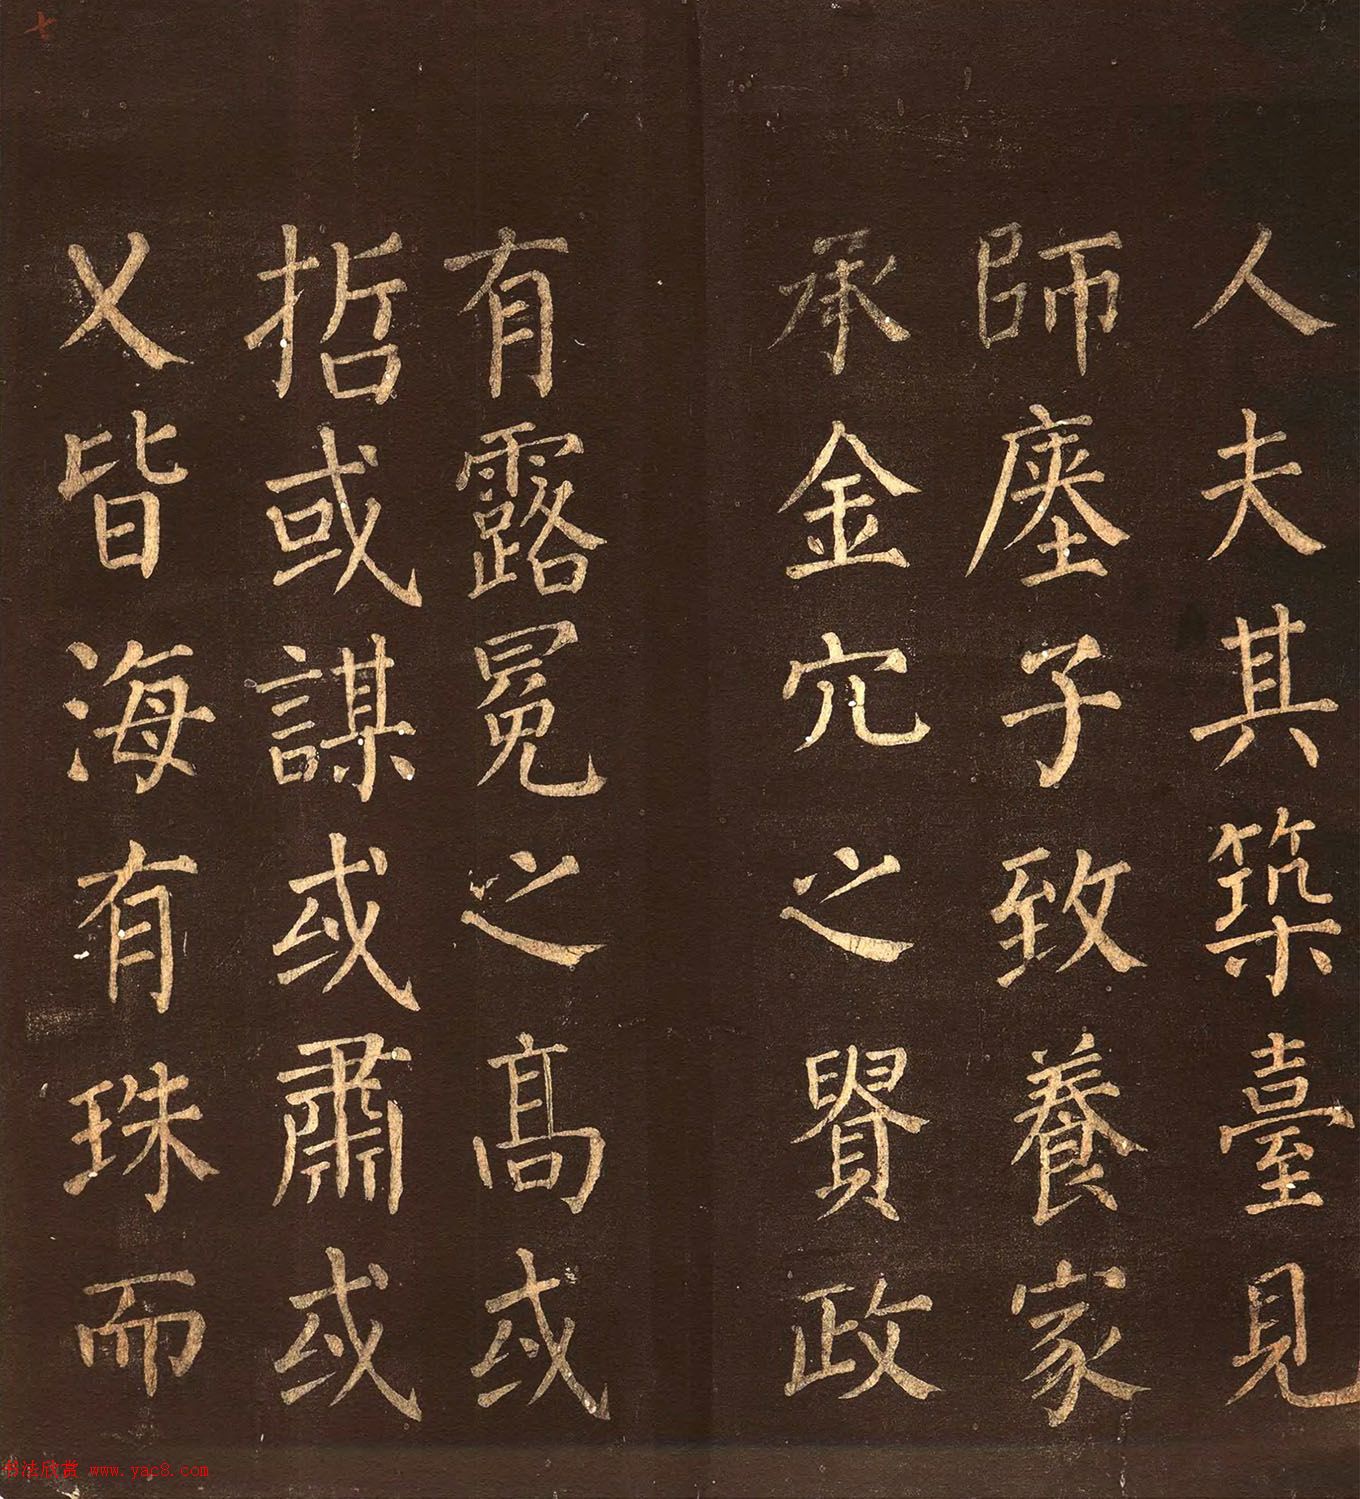 人夫其築臺見
師瘞子致養家
承金穴之賢政
有露冕之高或
哲或謀或肅或
乂皆海有珠而
书法欣赏 www.yac8.com